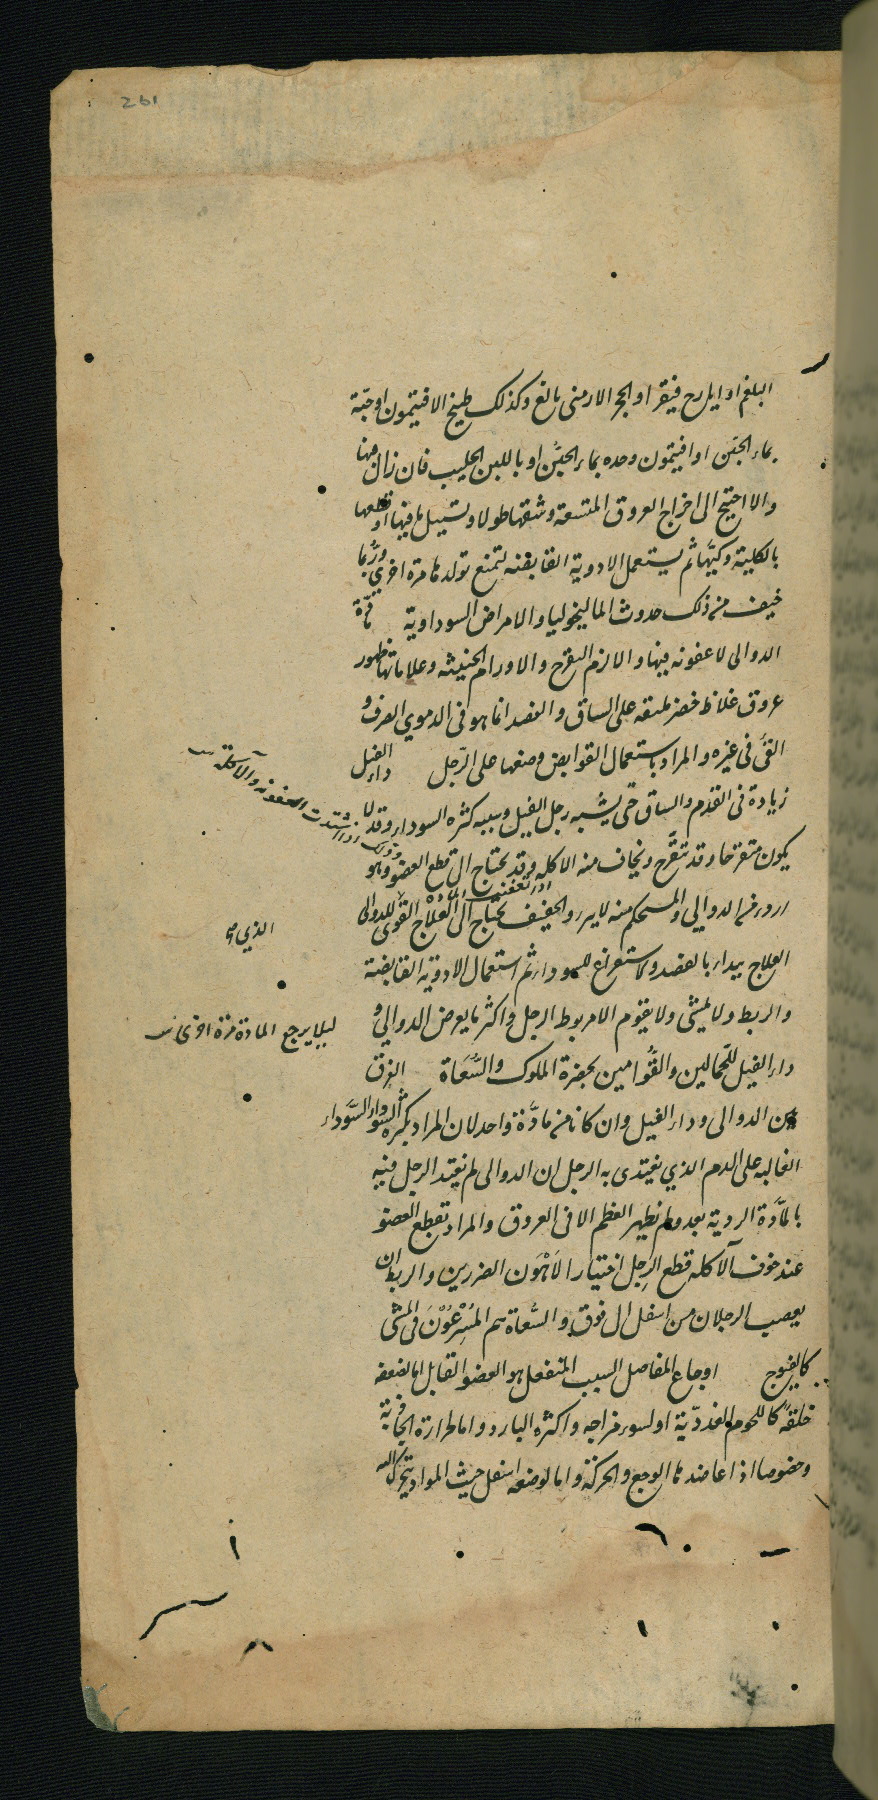 البلغم او ايارج فيقرا او الحجر الارمنى بالغ وكذلك طبيخ الافتيمون او حبّه
بماء الجبن او افتيمون وحده بماء الجبن او باللبن الحليب فان زال منها
والا احتيج الى اخراج العروق المتسعة وشقها طولا وتسييل ما فيها او قطعها
بالكلية وكيّها ثم يستعمل الادوية القابضة لتمنع تولدها مرة اخرى وربما
خيف من ذلك حدوث الماليخوليا والامراض السوداوية
الدوالى لا عفونه فيها والا لزم التقرح والاورام الخبيثه وعلاماتها ظهور
عروق غلاظ خضر ملتفه على الساق والفصد انما هو فى الدموي الصرف و
القئ فى غيره والمراد باستعمال القوابض وضعها على الرّجل داء الفيل
زيادة فى القدم والساق حتى يشبه رجل الفيل وسببه كثره السوداء وقد لا
يكون متقرحا وقد تتقرّح ويخاف منه الاكله وقد يحتاج الى قطع العضو وهو
اردء من الدوالي والمستحكم منه لا يبرء والخفيف يحتاج الى العلاج القوى للدوالى
العلاج يبداء بالفصد والاستفراغ للسوداء ثم استعمال الادوية القابضة
والربط ولا يمشى ولا يقوم الا مربوط الرجل واكثر ما يعرض الدوالي و
داء الفيل للحمالين والقُوّامين بحضرة الملوك والسُّعَاة الفرق
بين الدوالى وداء الفيل وان كانا من مادّة واحد لان المراد بكثره السوداء
الغالبه على الدم الذي يغتذى به الرجل ان الدوالى لم تغتذ الرجل فيه
بالمادّة الردية بعد ولم يظهر العظم الا فى العروق والمراد بقطع العضو
عند خوف الآكله قطع الرِجل اختيار الاَهْوَن الضررين والربط ان
يعصب الرجلان من اسفل الى فوق والسُّعاة هم المُسْرِعُوْنَ فى المشى
كالفيوج اوجاع المفاصل السبب المنفعل هو العضو القابل اما لضعفه
خلقة كاللحوم الغدديّة او لسوء مزاجه واكثره البارد واما لحرارة
وخصوصا اذا عاضدها الوجع والحركة واما لوضعه اسفل حيث المواد تتحرك اليه
اذا اشتدت العفونه والآكلة
الذي
ليلا يرجع المادة مرة اخرى
261